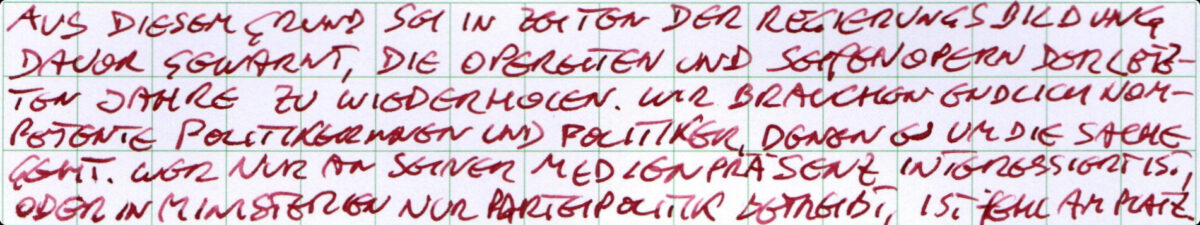 AUS DIESEM GRUND SEI IN ZEITEN DER REGIERUNGSBILDUNG
DAVOR GEWARNT, DIE OPERETTEN UND SEIFENOPERN DER LETZ-
TEN JAHRE ZU WIEDERHOLEN. WIR BRAUCHEN ENDLICH KOM-
PETENTE POLITIKERINNEN UND POLITIKER, DENEN ES UM DIE SACHE
GEHT. WER NUR AN SEINER MEDIENPRÄSENZ INTERESSIERT IST,
ODER IN MINISTERIEN NUR PARTEIPOLITIK BETREIBT, IST FEHL AM PLATZ.